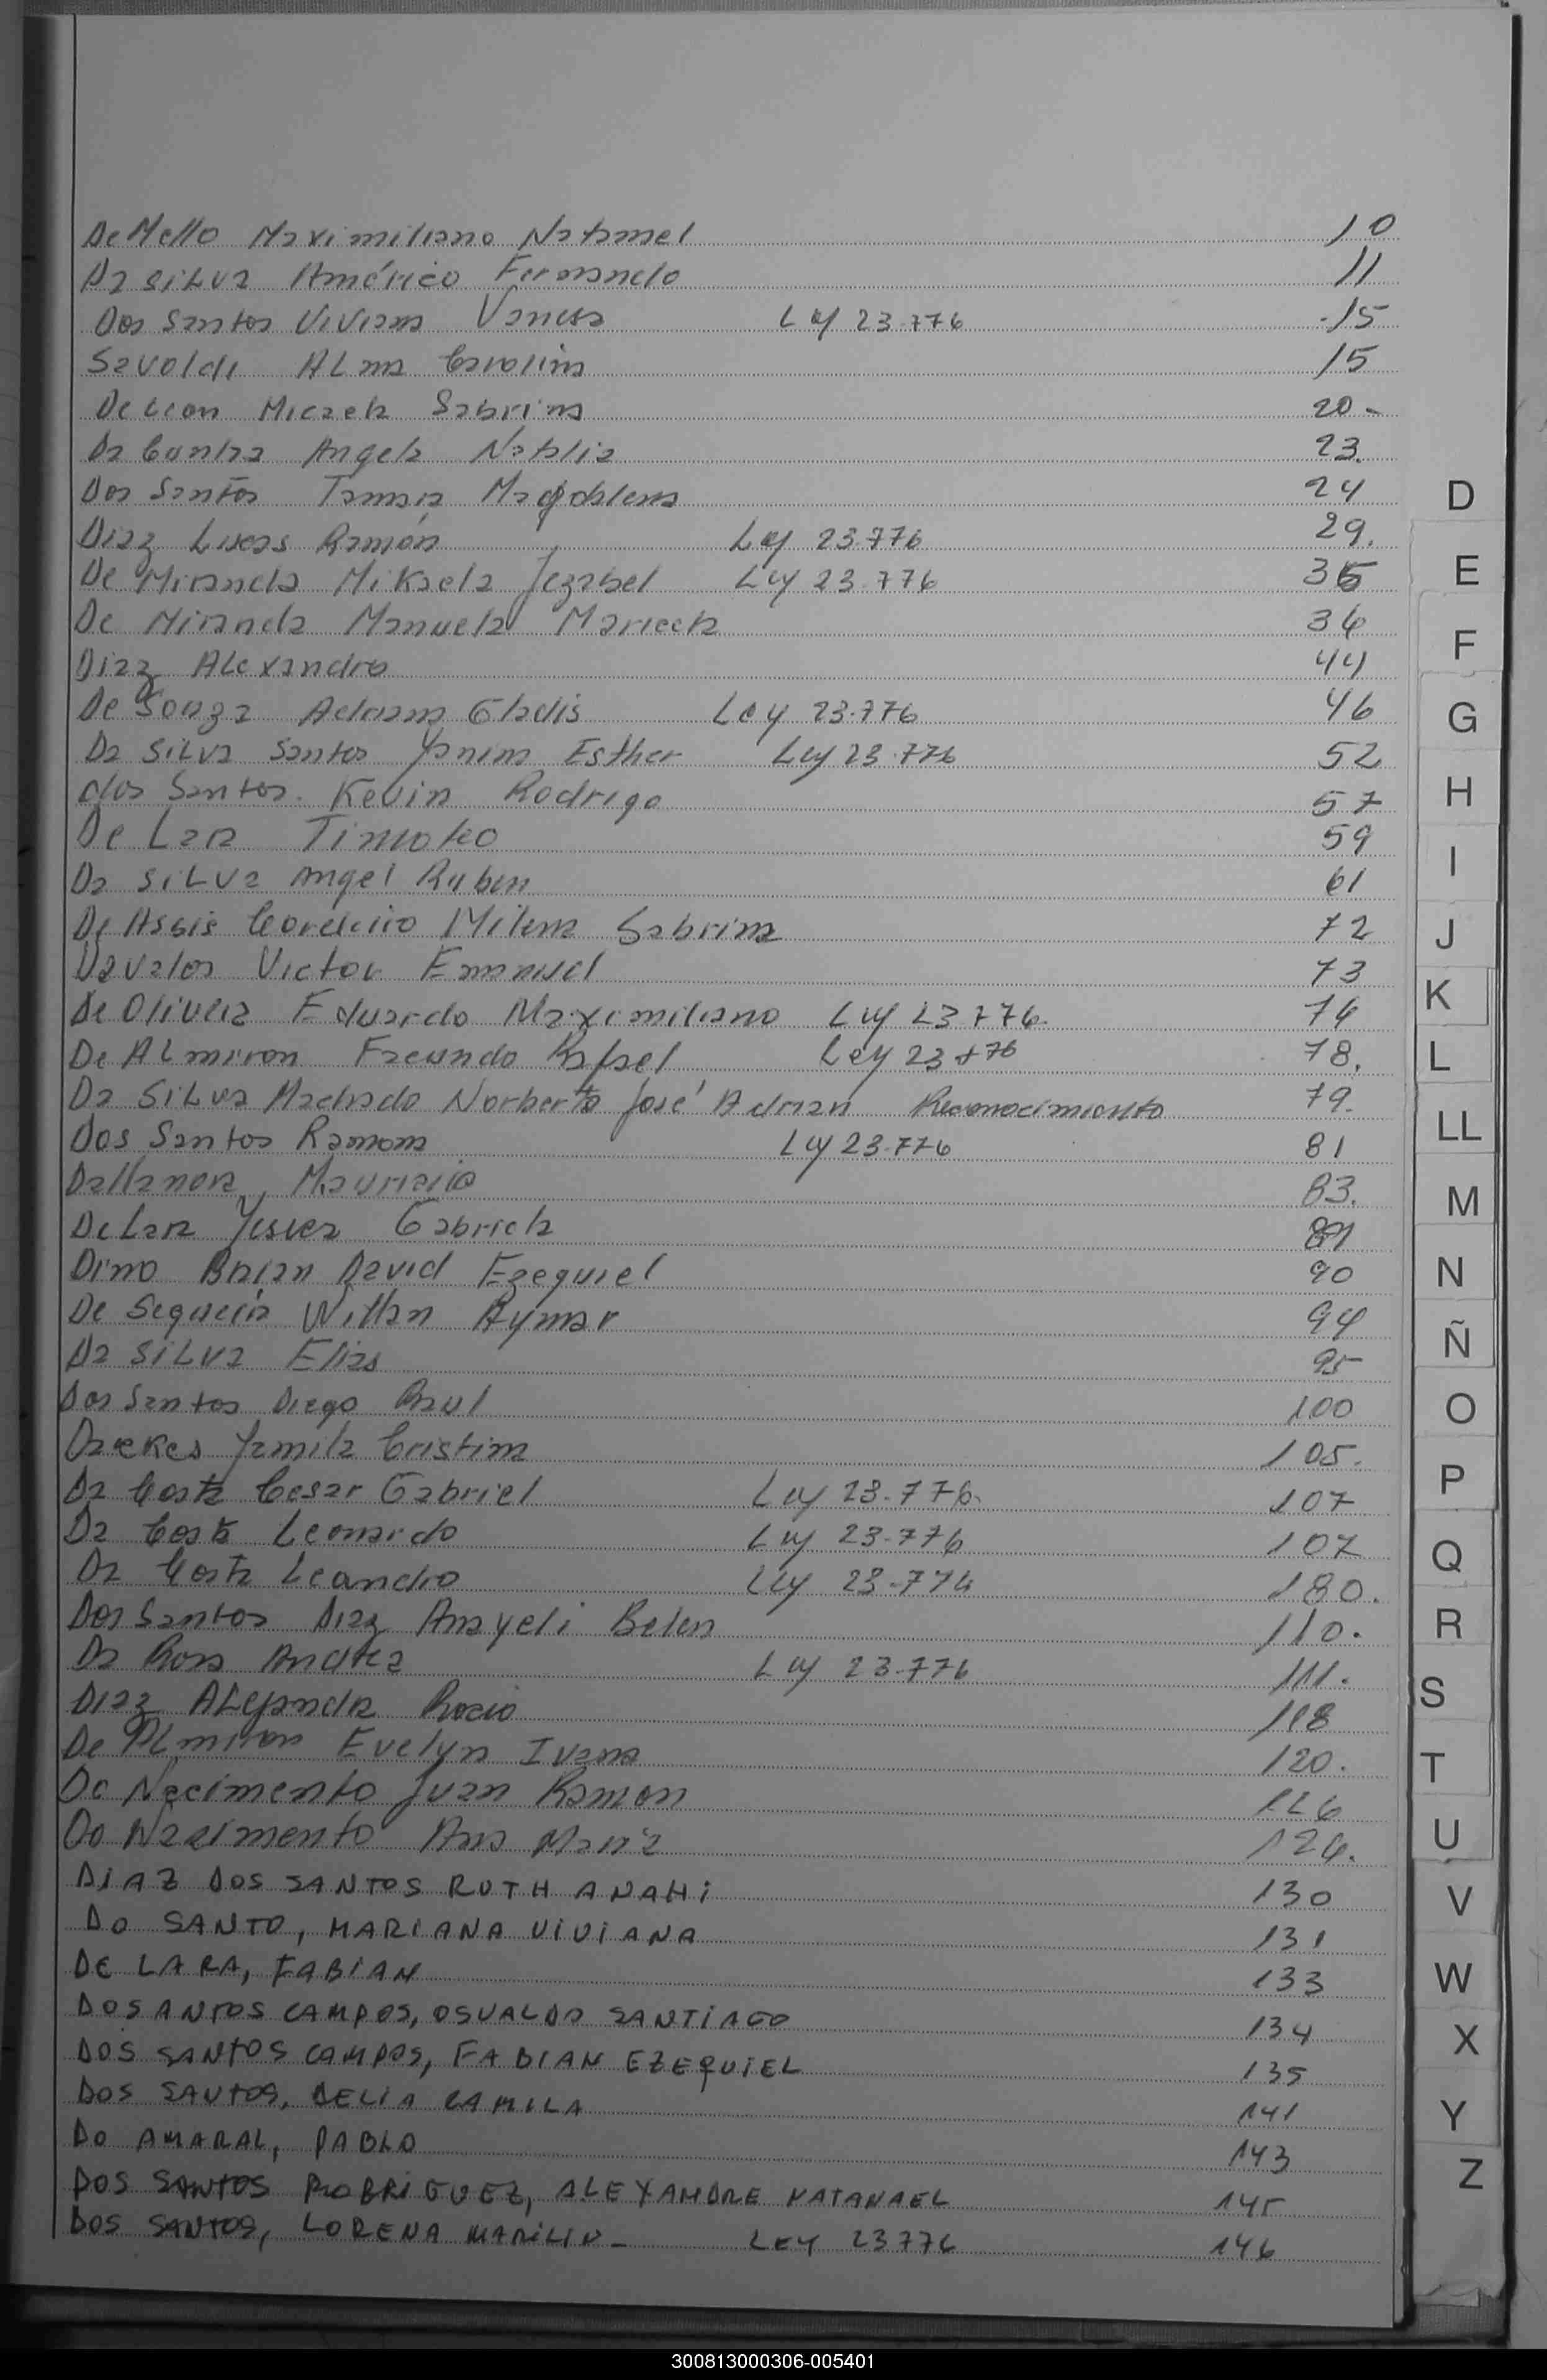 De Mello Maximiliano Natanael 10
Da Silva Américo Fernando 11
Dos Santos Viviana Vanesa Ley 23.776 15
Savoldi Alma Carolina 15
De Leon Micaela Sabrina 20-
Da Cunha Angela Natalia 23.
Dos Santos Tamara Magdalena 24
Diaz Lucas Ramón Ley 23.776 29.
De Miranda Mikaela Jezabel Ley 23.776 35
De Miranda Manuela Mariela 36
Diaz Alexandro 44
De Souza Adriana Gladis Ley 23.776 46
Da Silva Santos Yanina Esther Ley 23.776 52
dos Santos. Kevin Rodrigo 57
De Lara Timoteo 59
Da Silva Angel Ruben 61
De Assis Cordeiro Milena Sabrina 72
Davalos Victor Emanuel 73
De Olivera Eduardo Maximiliano Ley 23776. 74
De Almiron Facundo Rafael Ley 23776 78.
Da Silva Machado Norberto José Adrian Reconocimiento 79.
Dos Santos Ramona Ley 23.776 81
Dallanora, Mauricio 83.
De Lara Yesica Gabriela
Dino Brian David Ezequiel 90
De Sequeira Willan Aymar 94
Da Silva Elias 95
Dos Santos Diego Raul 100
Yamila Cristina 105.
Da Costa Cesar Gabriel Ley 23.776. 107
Da Costa Leonardo Ley 23.776 107
Da Costa Leandro Ley 23-776 180.
Dos Santos Diaz Anayeli Belen 110.
Da Rosa Andrea Ley 23.776 111.
Diaz Alejandra Rocio 118
De Almiron Evelyn Ivana 120.
Do Nacimento Juan Ramon 126
Do Nacimento Ana Maria 126.
DIAZ DOS SANTOS RUTH ANAHI 130
DO SANTO, MARIANA VIVIANA 131
DE LARA, FABIAN 133
DOSANTOS CAMPOS, OSVALDO SANTIAGO 134
DOS SANTOS CAMPOS, FABIAN EZEQUIEL 135
DOS SANTOS, DELIA CAMILA 141
DO AMARAL, PABLO 143
DOS SANTOS RODRIGUEZ, ALEXANDRE NATANAEL 145
DOS SANTOS, LORENA LEY 23776 146
D
E
F
G
H
I
J
K
L
LL
M
N
Ñ
O
P
Q
R
S
T
U
V
W
X
Y
Z
300813000306-005401